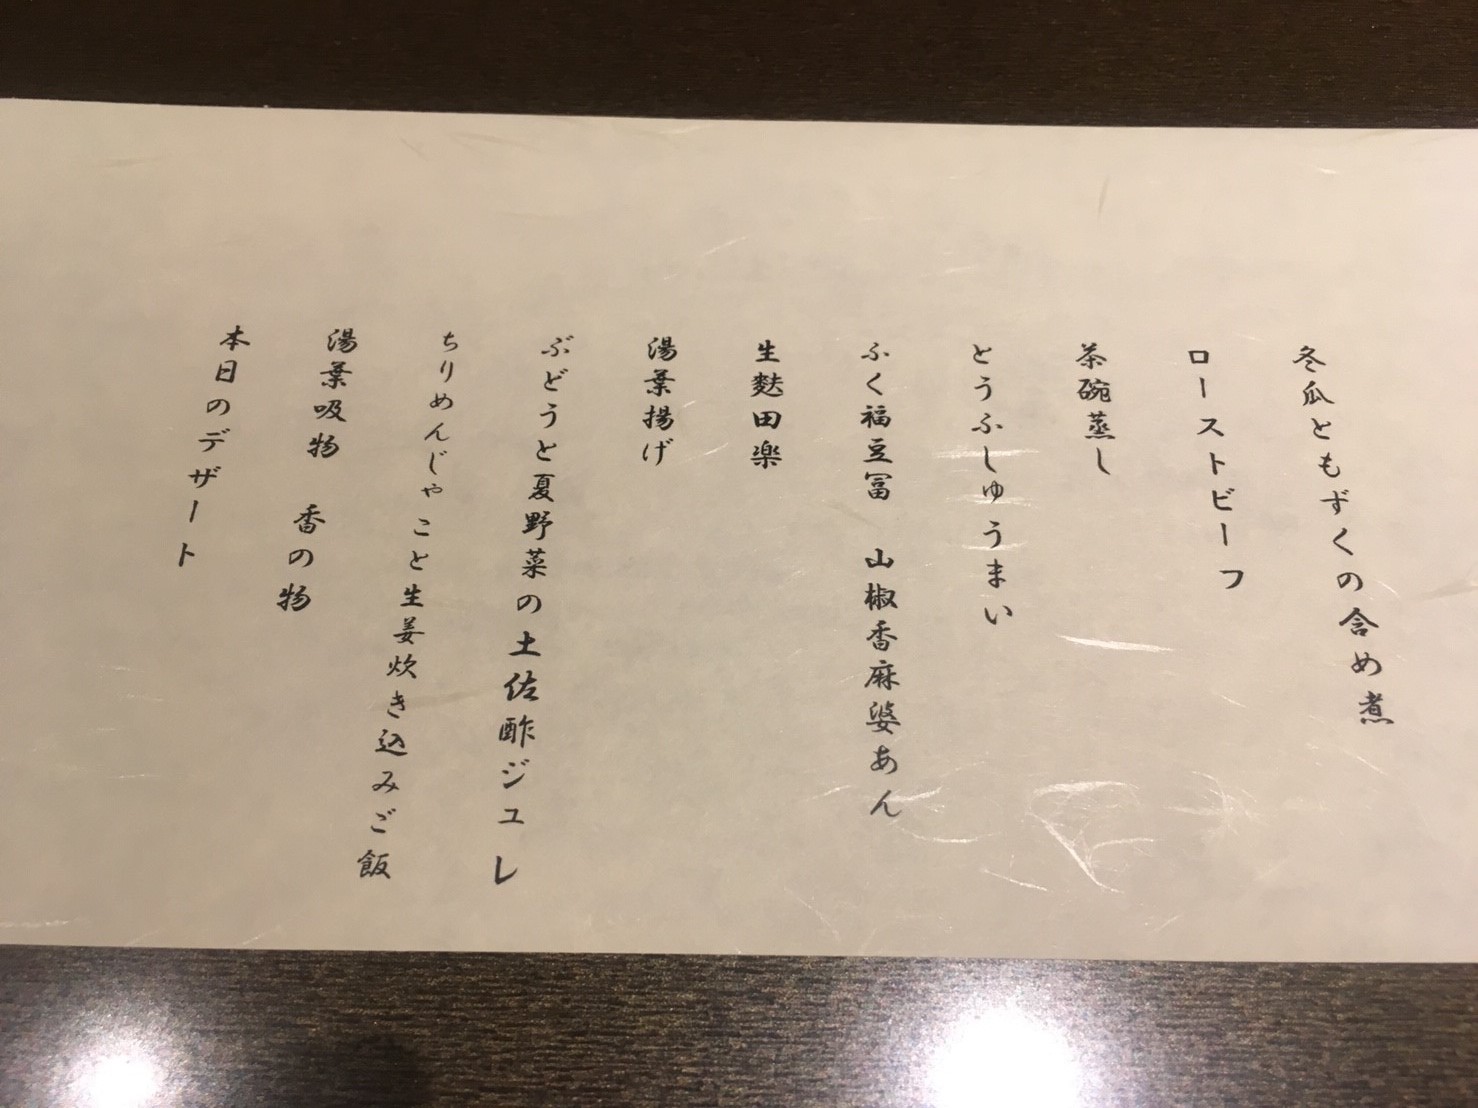 冬瓜ともずくの含め煮
ローストビーフ
茶碗蒸し
とうふしゅうまい
ふく福豆冨　山椒香麻婆あん
生麩田楽
湯葉揚げ
ぶどうと夏野菜の土佐酢ジュレ
ちりめんじゃこと生姜炊き込みご飯
湯葉吸物　香の物
本日のデザート